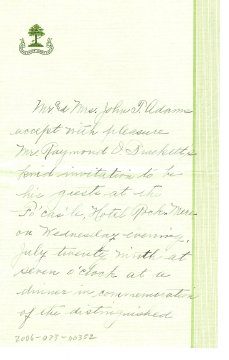 Mr & Mrs. John F. Adams
accept with pleasure
Mr. Raymond O. Burkett's
kind invitation to be
his guests at the
Hotel Rock-Mere
on Wednesday evening,
July twenty ninth at
seven o'clock at a
dinner in commemoration
of the distinguished
2006-073-00352